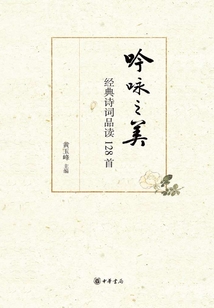 吟咏之美
经典诗词品读128首
黄玉峰 主编
中华书局